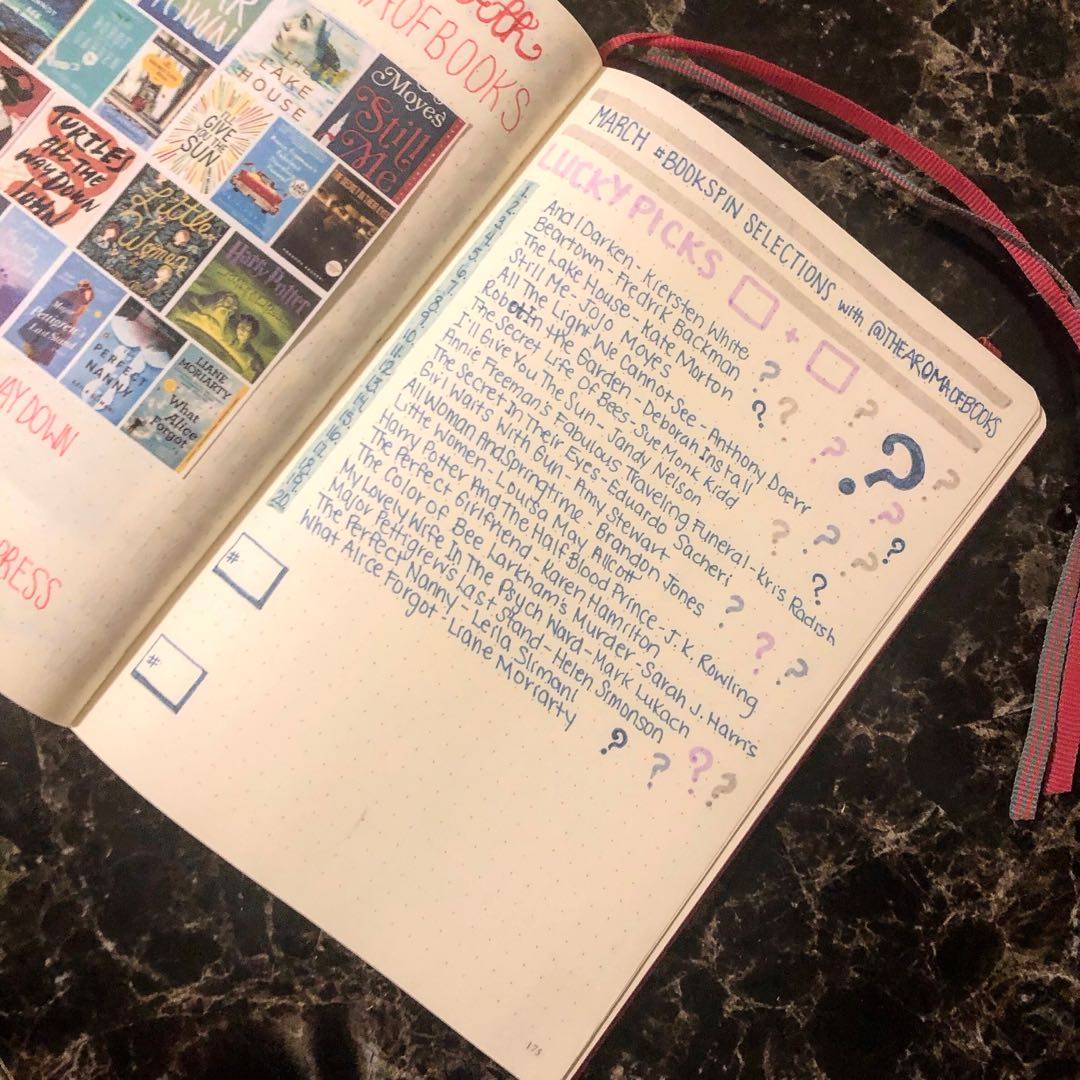 OFBOOKS
LAKE
HOUSE
Moyes
Still
Me
I'LL
GIVE
YOU THE
SUN
TURTLES
ALL THE
WAY DOWN
JOHN
Little
Women
Harry Potter
Major
Pettigrew's
Last Stand
PERFECT
NANNY
LIANE
MORIARTY
What
Alice
Forgot
AY DOWN
PRESS
MARCH #BOOKSPIN SELECTIONS with @THEAROMAOFBOOKS
LUCKY PICKS □ + □
1. And I Darken - Kiersten White
2. Beartown - Fredrik Backman
3. The Lake House - Kate Morton
4. Still Me - Jojo Moyes
5. All The Light We Cannot See - Anthony Doerr
6. Robot In the Garden - Deborah Install
7. The Secret Life Of Bees - Sue Monk Kidd
8. I'll Give You The Sun - Jandy Nelson
9. Annie Freeman's Fabulous Traveling Funeral - Kris Radish
10. The Secret In Their Eyes - Eduardo Sacheri
11. Girl Waits With Gun - Amy Stewart
12. All Woman And Springtime - Brandon Jones
13. Little Women - Louisa May Allcott
14. Harry Potter And The Half Blood Prince - J.K. Rowling
15. The Perfect Girlfriend - Karen Hamilton
16. The Color of Bee Larkham's Murder - Sarah J. Harris
17. My Lovely Wife In The Psych Ward - Mark Lukach
18. Major Pettigrew's Last Stand - Helen Simonson
19. The Perfect Nanny - Leila Slimani
20. What Alice Forgot - Liane Moriarty
#
#
175